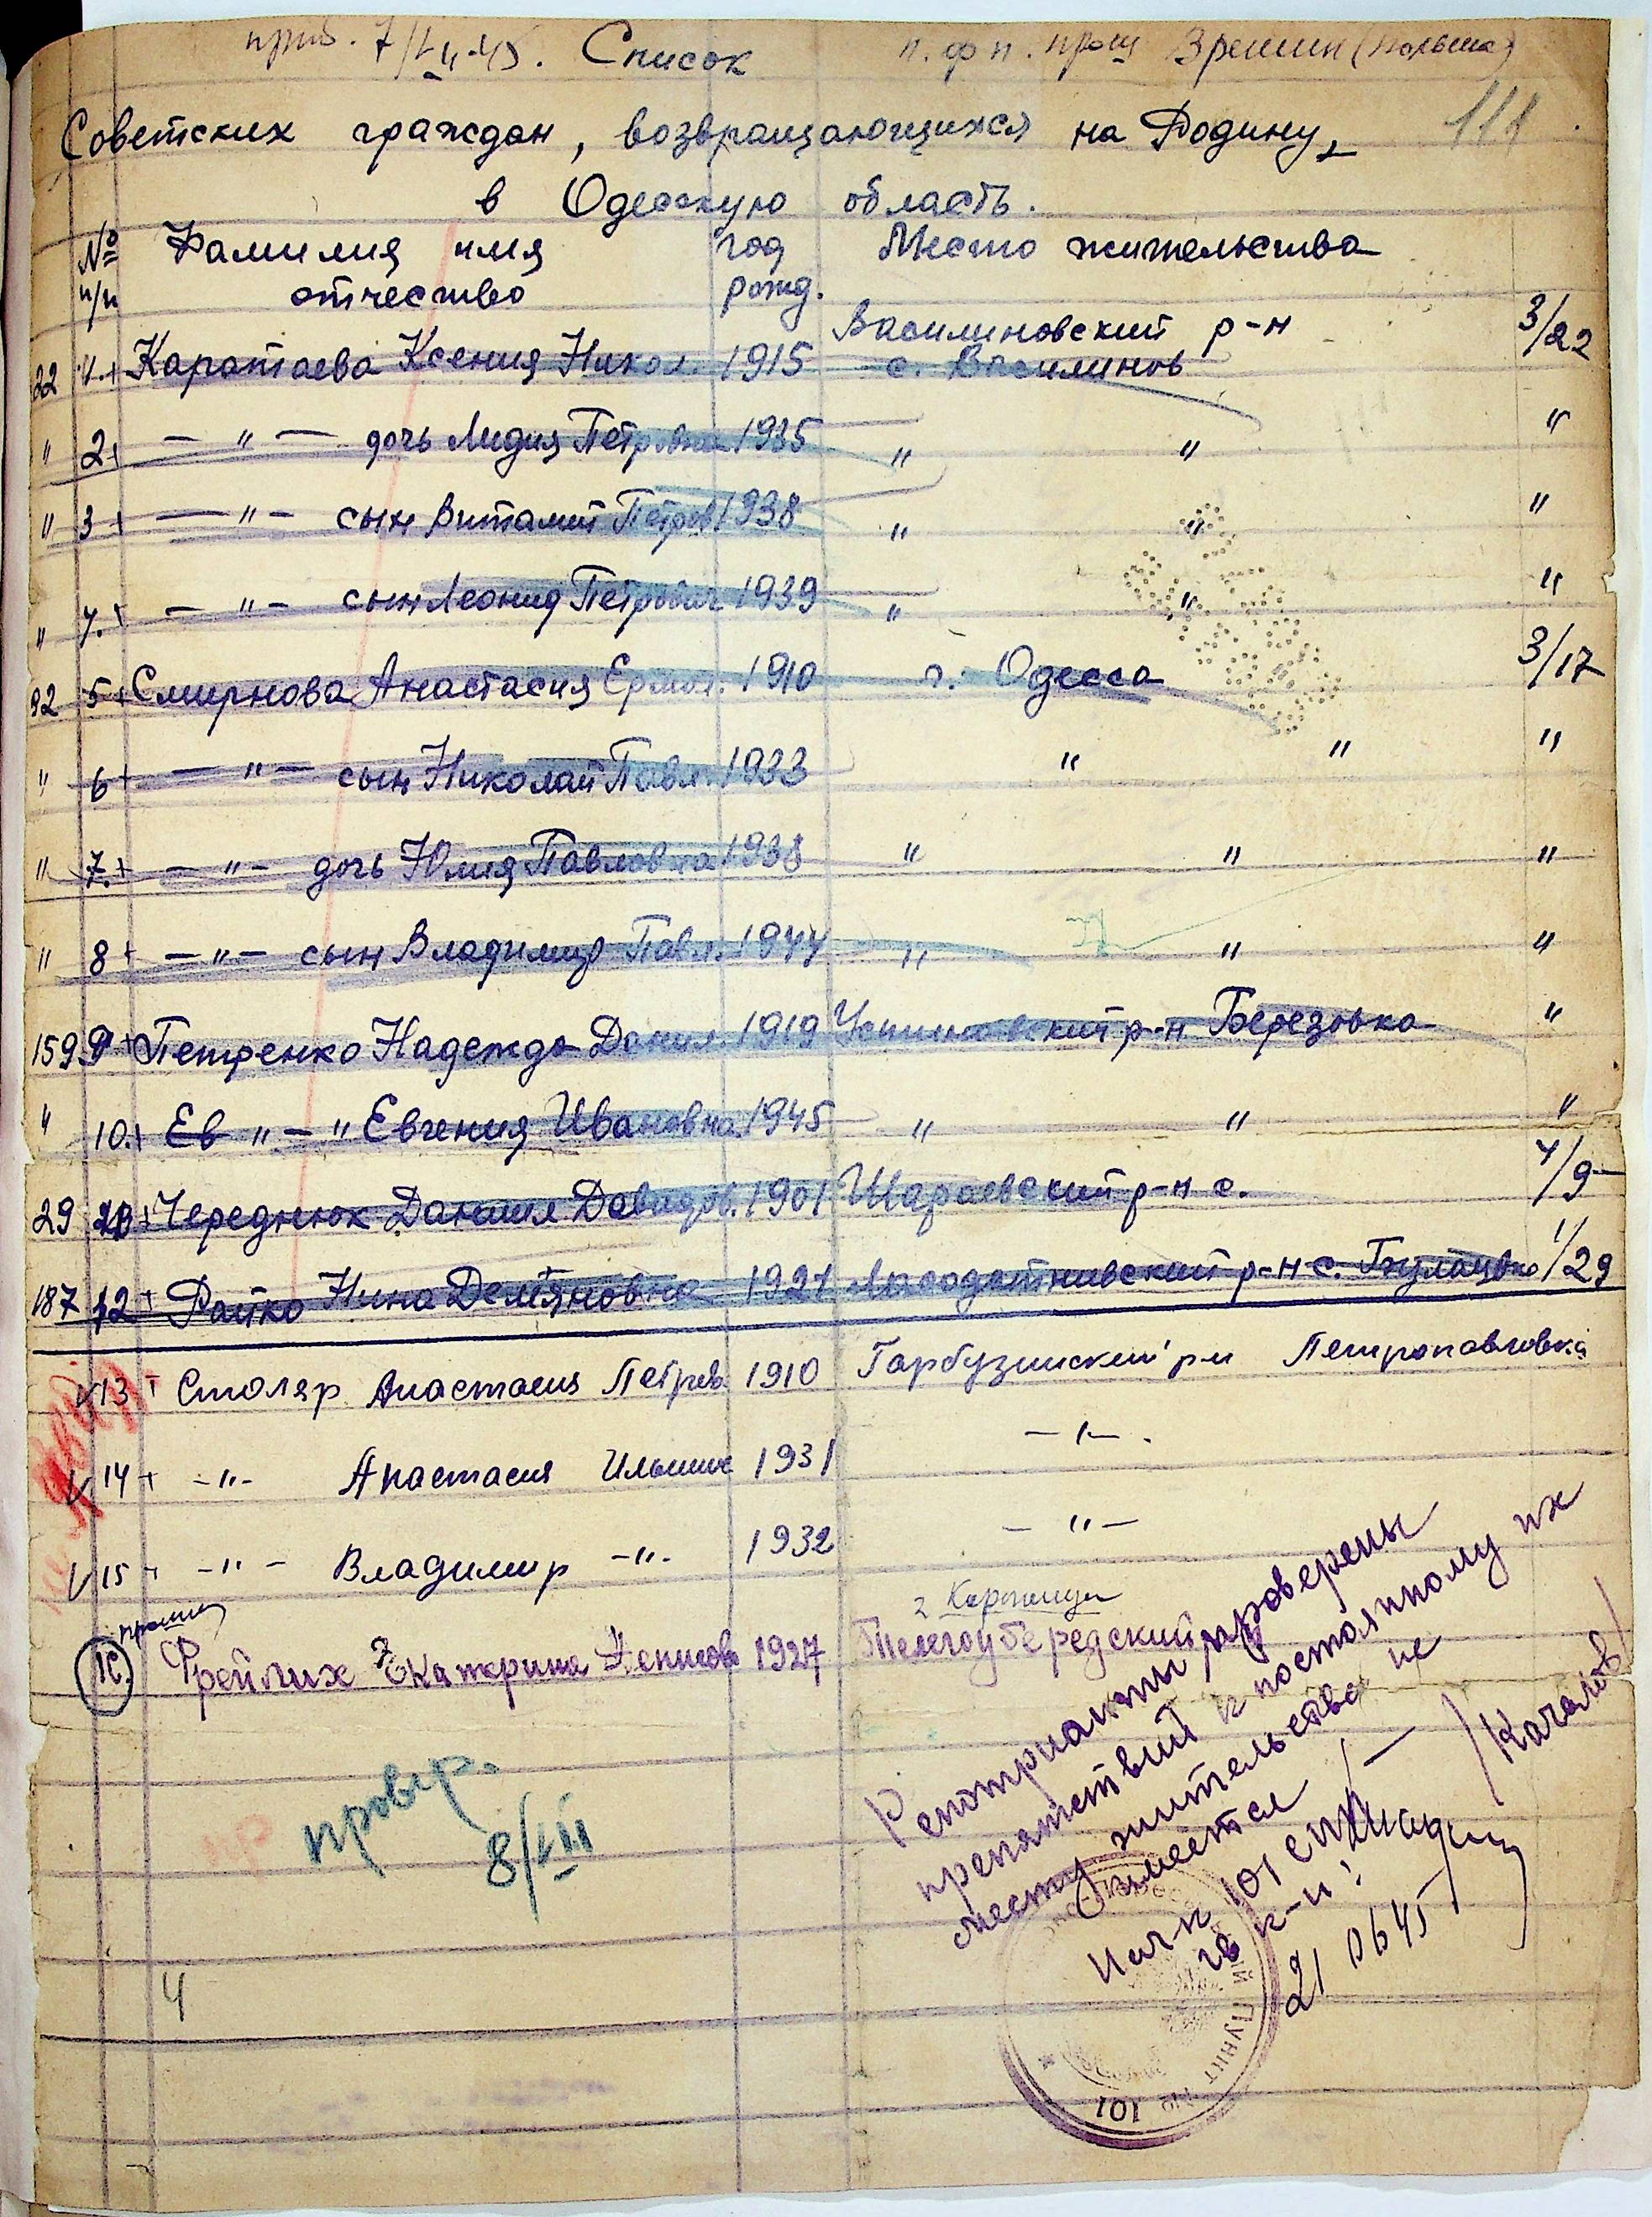 приб. 7/VII-45. Список п. ф п. прош Врешин (польша)
111
Советских граждан, возвращающихся на Родину,
в Одесскую область.
№ п/п Фамилия имя отчество год рожд. Место жительства
22 1.+ Каратаева Ксения Никол. 1915 Василиновский р-н с. Василинов 3/22
" 2+ — " — дочь Лидия Петровна 1935 " " "
" 3+ — " — сын Виталий Петров 1938 " " "
" 4.+ — " — сын Леонид Петрович 1939 " " "
92 5+ Смирнова Анастасия Ермол. 1910 г. Одесса 3/17
" 6+ — " — сын Николай Павл. 1933 " " "
" 7.+ — " — дочь Юлия Павловна 1938 " " "
" 8+ — " — сын Владимир Павл. 1944 " " "
159 9+ Петренко Надежда Данил. 1919 р-н Березовка "
" 10.+ Ев " — " Евгения Ивановна 1945 " " "
29 + Чередник Даниил Давидов. 1901 Шараевский р-н с. 4/9
187 12+ Райко Нина Демяновна 1921 р-н с. 1/29
V 13+ Столяр Анастасия Петров. 1910 Гарбузинский р-н Петропавловка
V 14+ -"- Анастасия Ильинич 1931 -"-.
V 15+ -"- Владимир -"- 1932 — " —
прошли
16. Фрейлих Екатерина 1927
Репатрианты проверены
препятствий к постоянному их
месту жительства не
имеется
Нач-к 101 СПП
к-н: /Качалов/
21 06 45
провер.
8/VIII
пр
4
ПУНКТ № 101